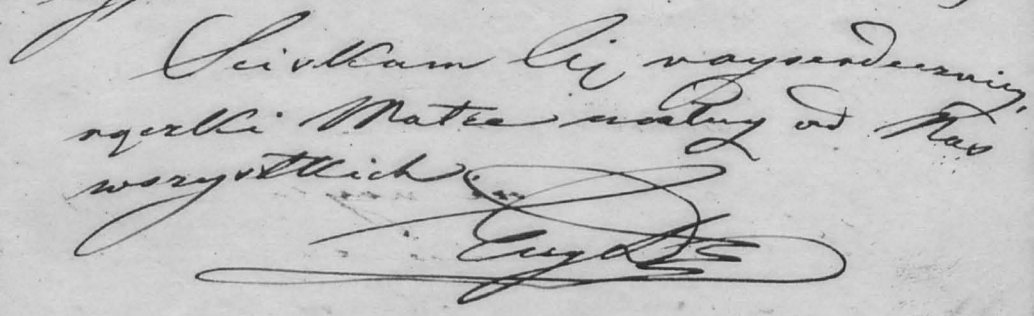 Sciskam Cię nayserdeczniey,
rączki Matce ucałuy od Nas
wszystkich.
Eug